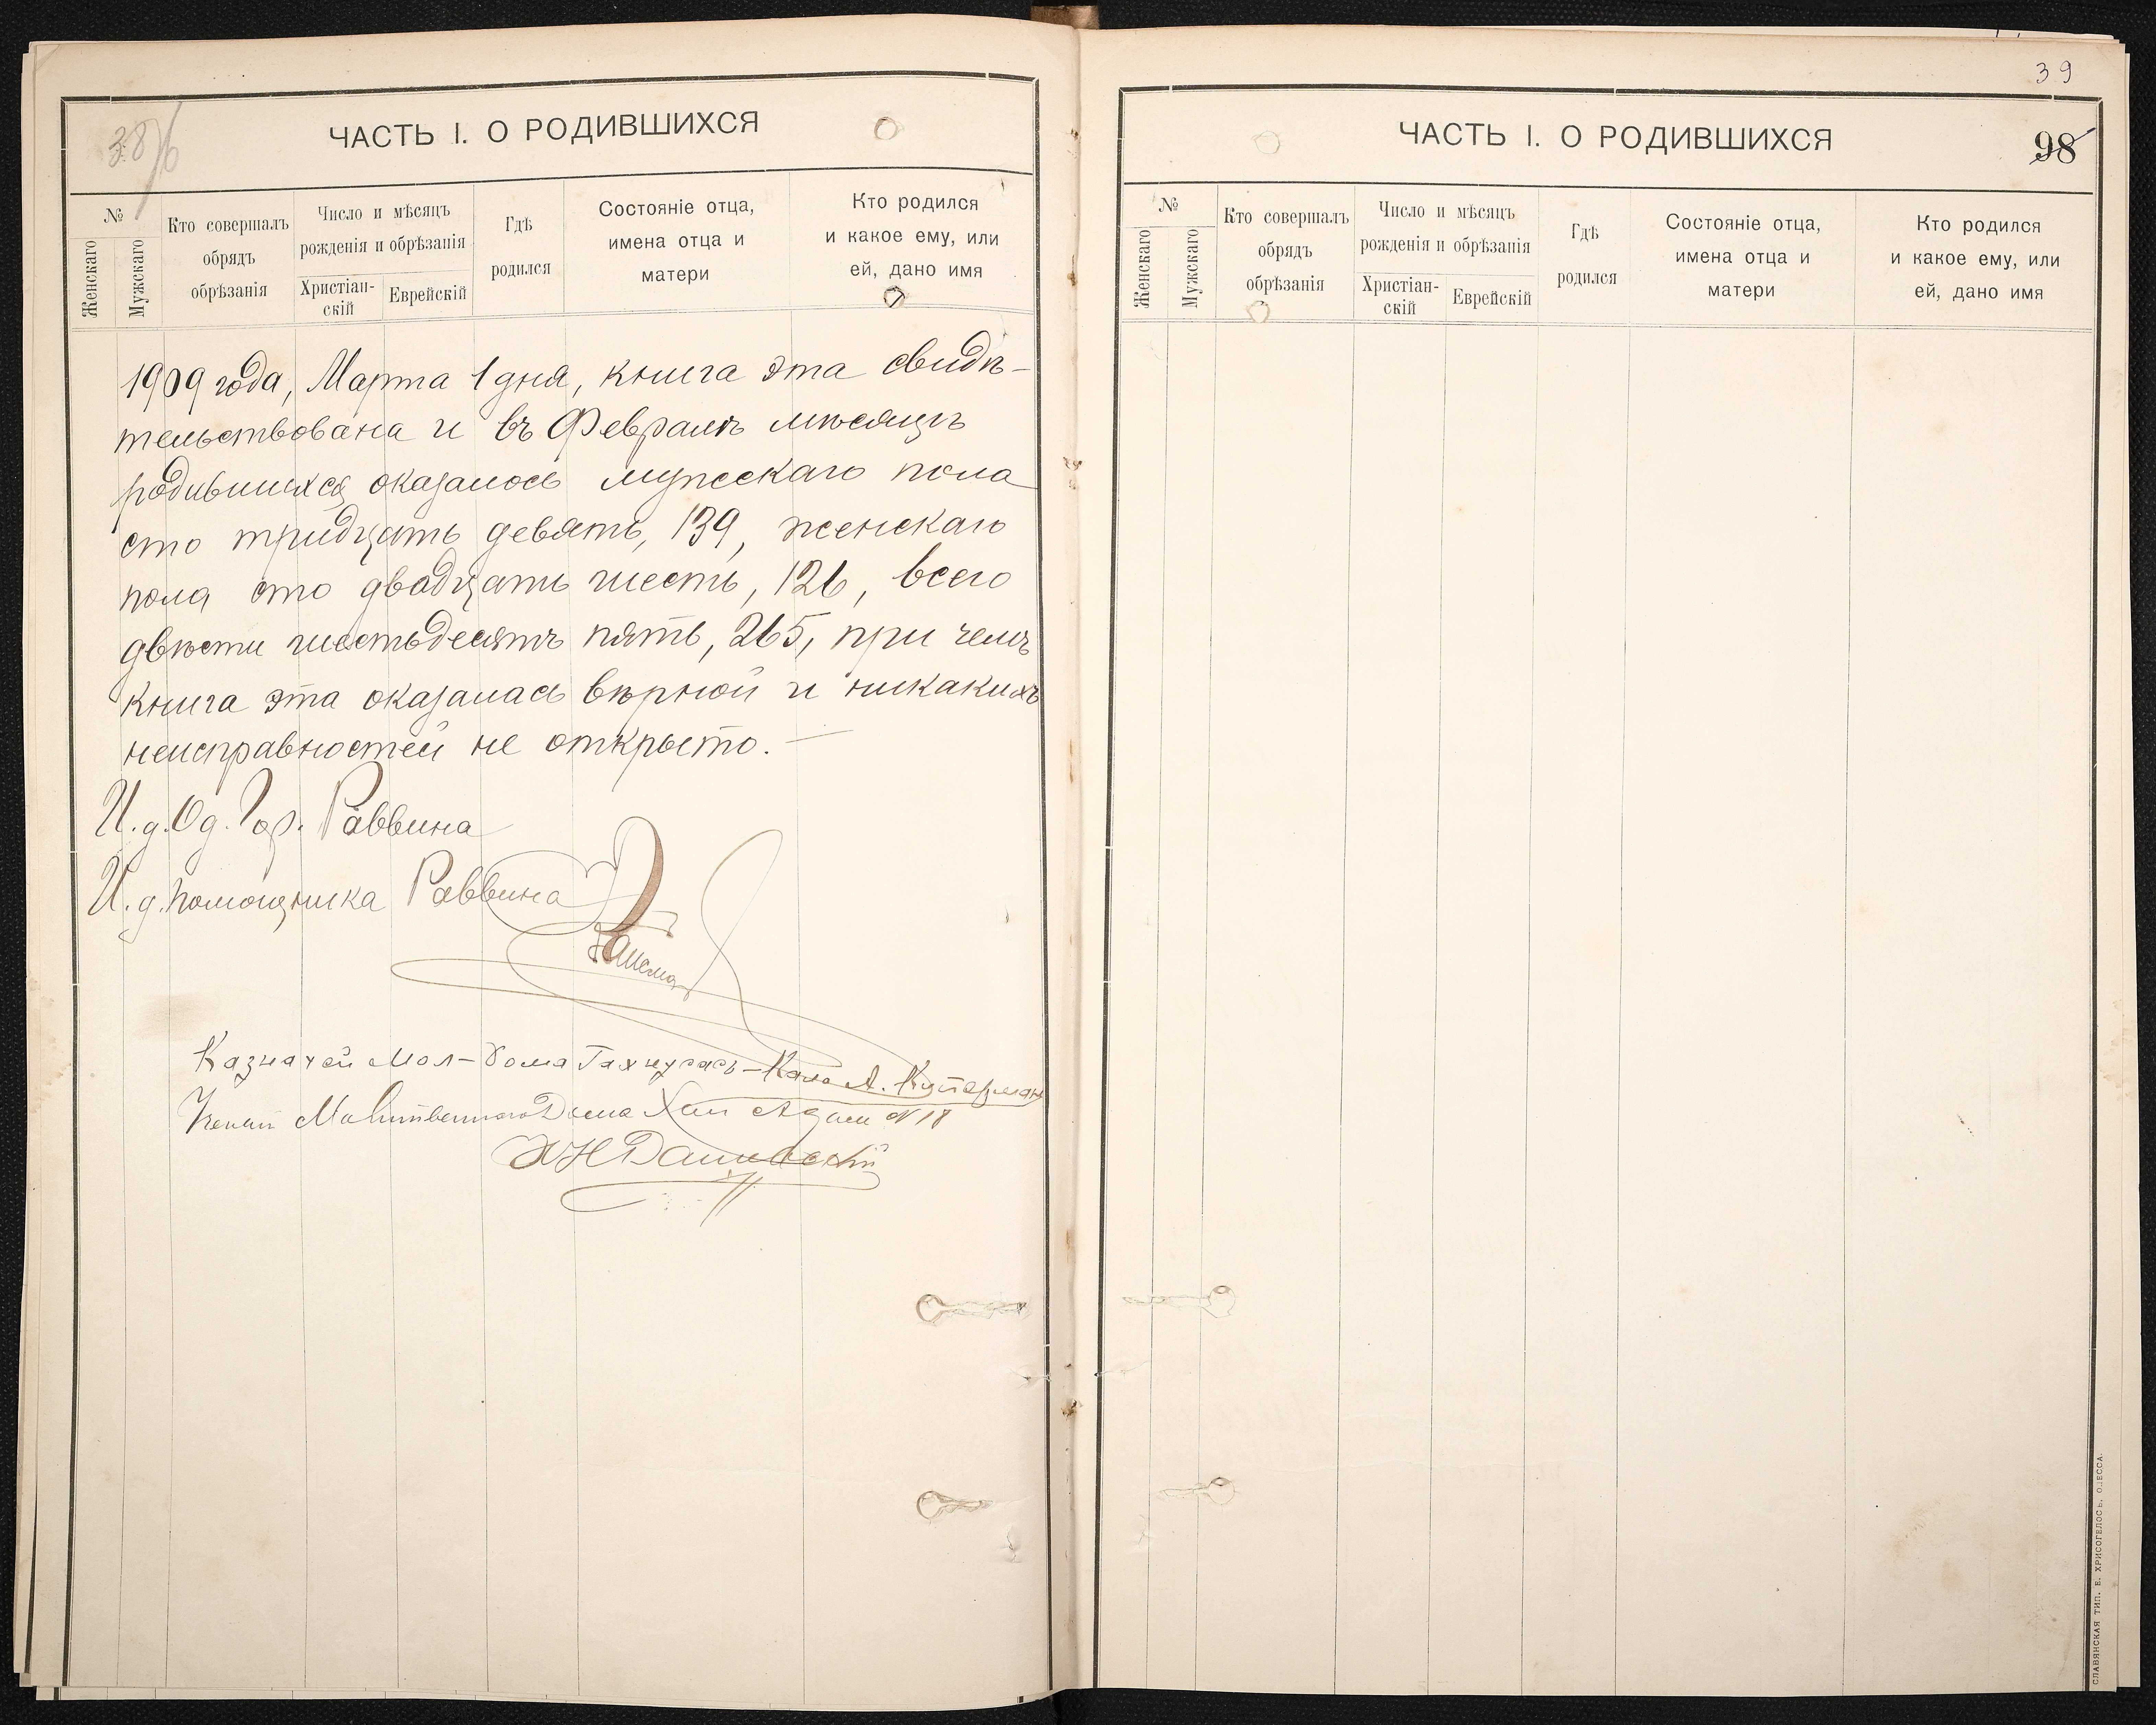 38/б
ЧАСТЬ I. О РОДИВШИХСЯ
№
Женскаго
Мужскаго
Кто совершалъ
обрядъ
обрѣзанія
Число и мѣсяцъ
рожденія и обрѣзанія
Христіан-
скій
Еврейскій
Гдѣ
родился
Состояніе отца,
имена отца и
матери
Кто родился
и какое ему, или
ей, дано имя
1909 года, Марта 1 дня, книга эта свидѣ-
тельствована и въ Февралѣ мѣсяцѣ
родившихся оказалось мужескаго пола
сто тридцать девять, 139, женскаго
пола сто двадцать шесть, 126, всего
двѣсти шестьдесятъ пять, 265, при чемъ
книга эта оказалась вѣрной и никакихъ
неисправностей не открыто. —
И. д. Од. Гор. Раввина
И. д. помощника Раввина
Казначей Мол-дома А. Куперман
Молитвеннаго Дома Хаи Адам N 18
39
ЧАСТЬ I. О РОДИВШИХСЯ
98
№
Женскаго
Мужскаго
Кто совершалъ
обрядъ
обрѣзанія
Число и мѣсяцъ
рожденія и обрѣзанія
Христіан-
скій
Еврейскій
Гдѣ
родился
Состояніе отца,
имена отца и
матери
Кто родился
и какое ему, или
ей, дано имя
СЛАВЯНСКАЯ ТИП. Е. ХРИСОГЕЛОСЪ. ОДЕССА.